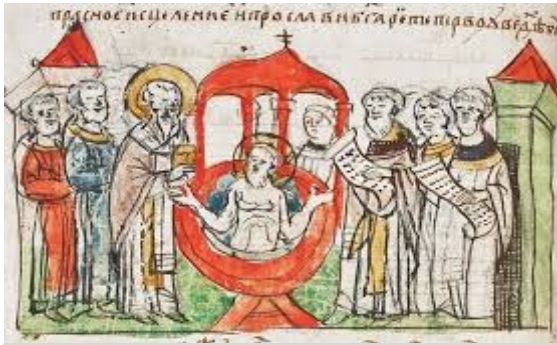 прасное исцеление и прослави бг҃а ре топерво ѹведѣ